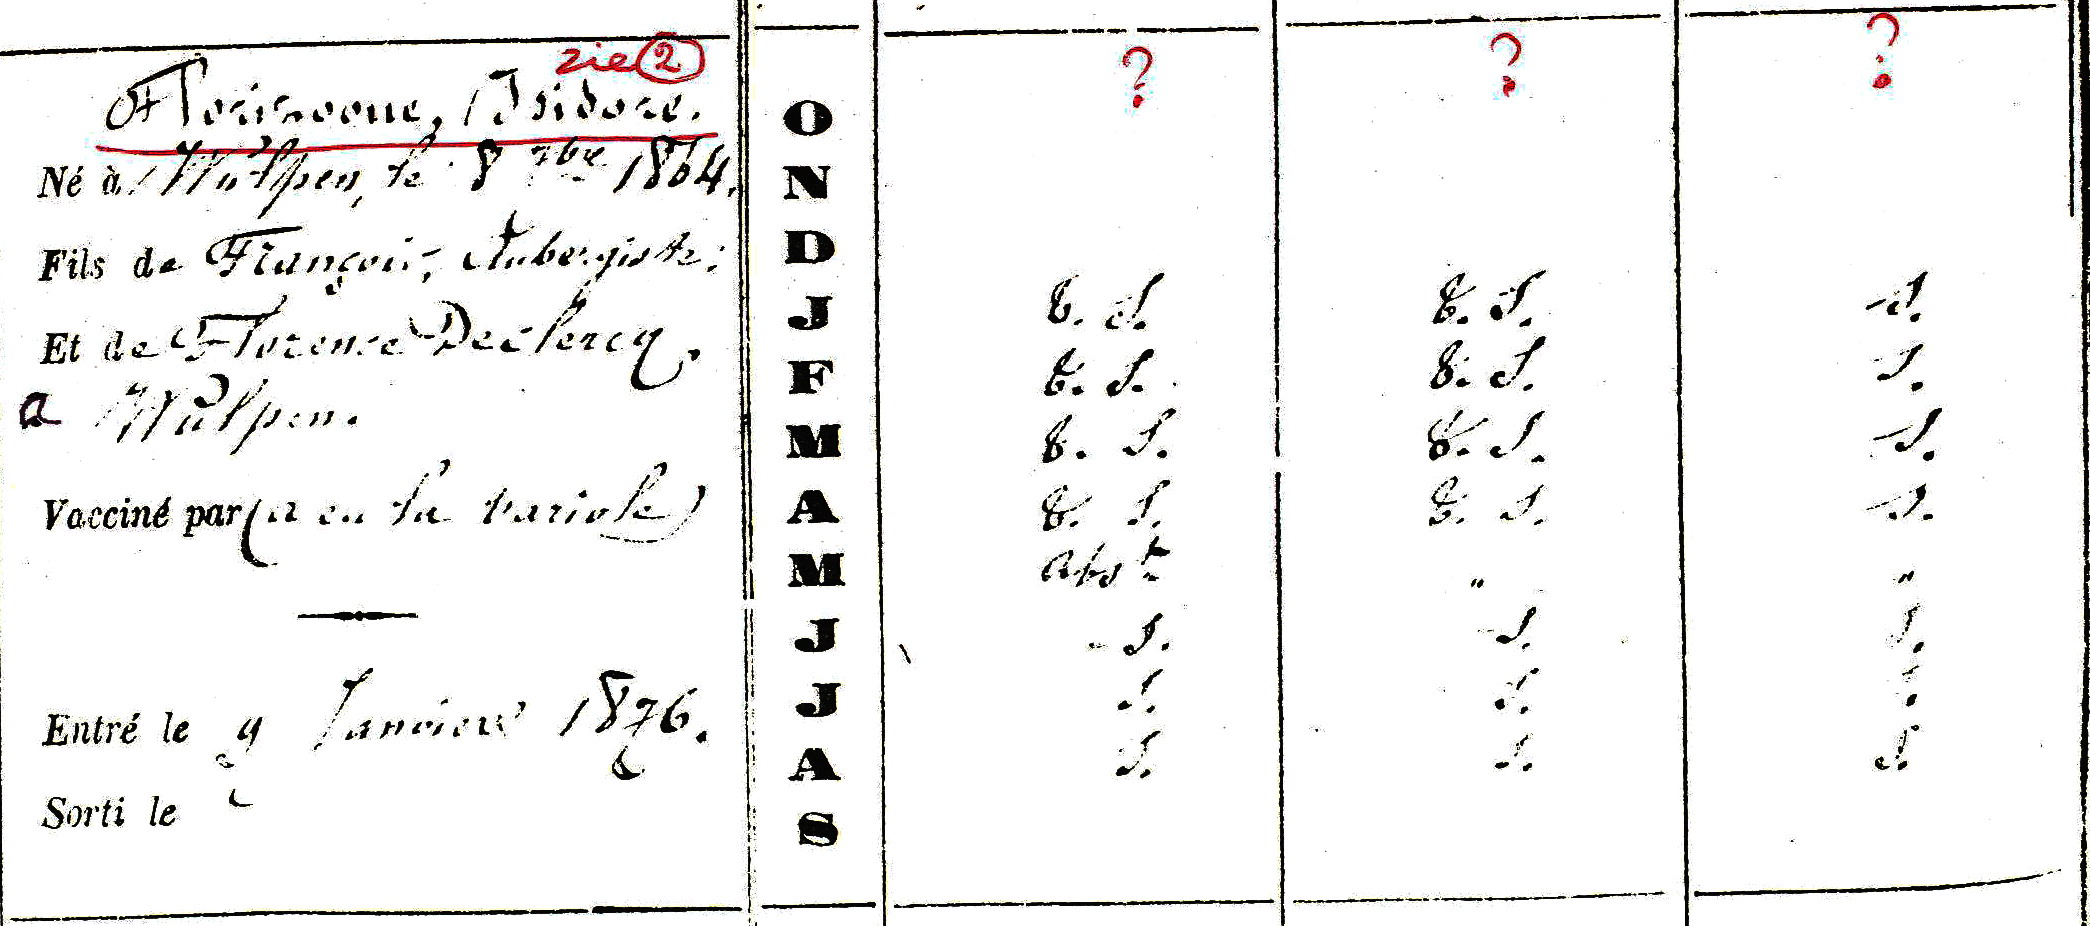 zie 2
Florizoone, Isidore.
Né à Wulpen, le 8 7bre 1864.
Fils de François, Aubergiste;
Et de Florence Declercq,
a Wulpen.
Vacciné par (a eu la variole)
Entré le 9 Janvier 1876.
Sorti le
? ? ?
O
N
D
J B. S. B. S. S.
F B. S. B. S. S.
M B. S. B. S. S.
A B. S. B. S. S.
M Abst " "
J S. S. S.
J S. S. S.
A S. S. S.
S